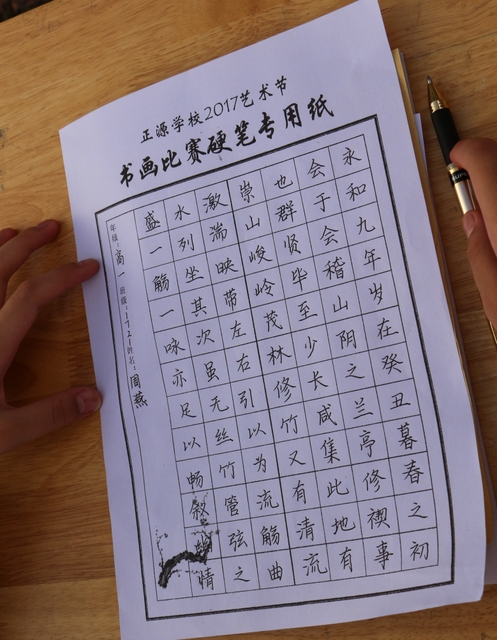 正源学校2017艺术节
书画比赛硬笔专用纸
永和九年岁在癸丑暮春之初
会于会稽山阴之兰亭修禊事
也群贤毕至少长咸集此地有
崇山峻岭茂林修竹又有清流
激湍映带左右引以为流觞曲
水列坐其次虽无丝竹管弦之
盛一觞一咏亦足以畅叙幽情
年级：高一 班级：1721 姓名：周燕